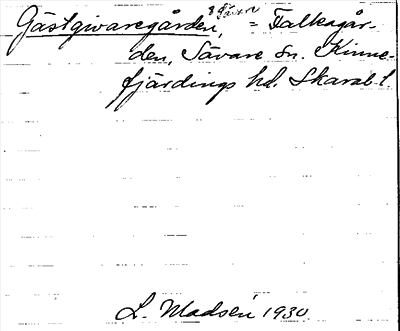 Gästgivaregården, = Falkagår-
den, Sävare sn. Kinne-
fjärdings hd. Skarab. l.
L. Madsén 1930